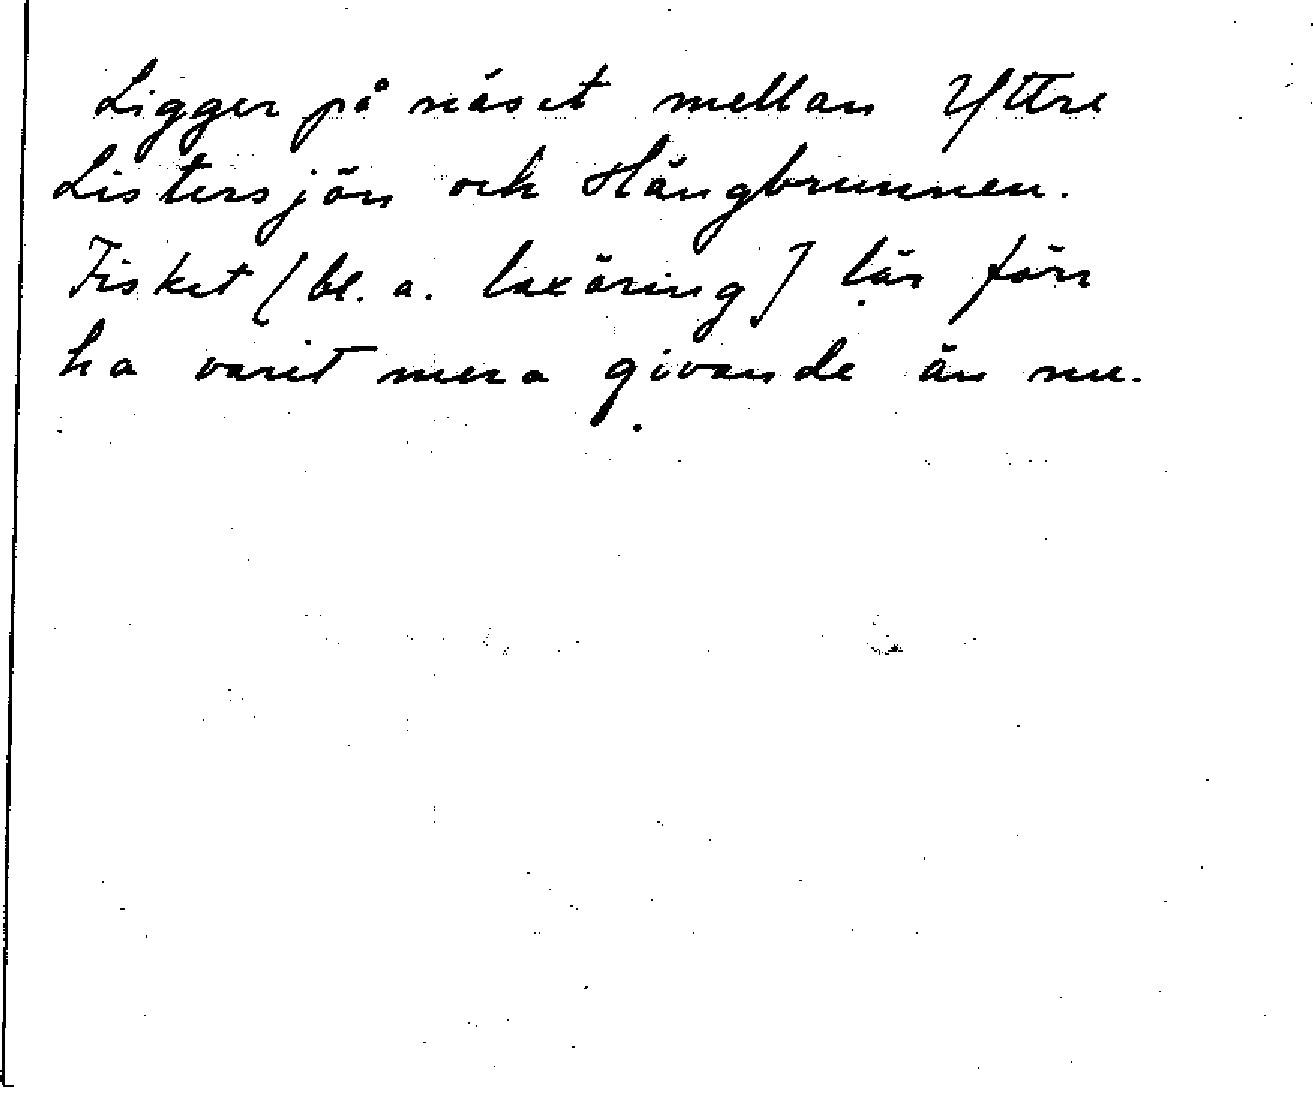 Ligger på näset mellan Yttre
Listersjön och Hångbrunnen.
Fisket (bl. a. laxöring) lär förr
ha varit mera givande än nu.